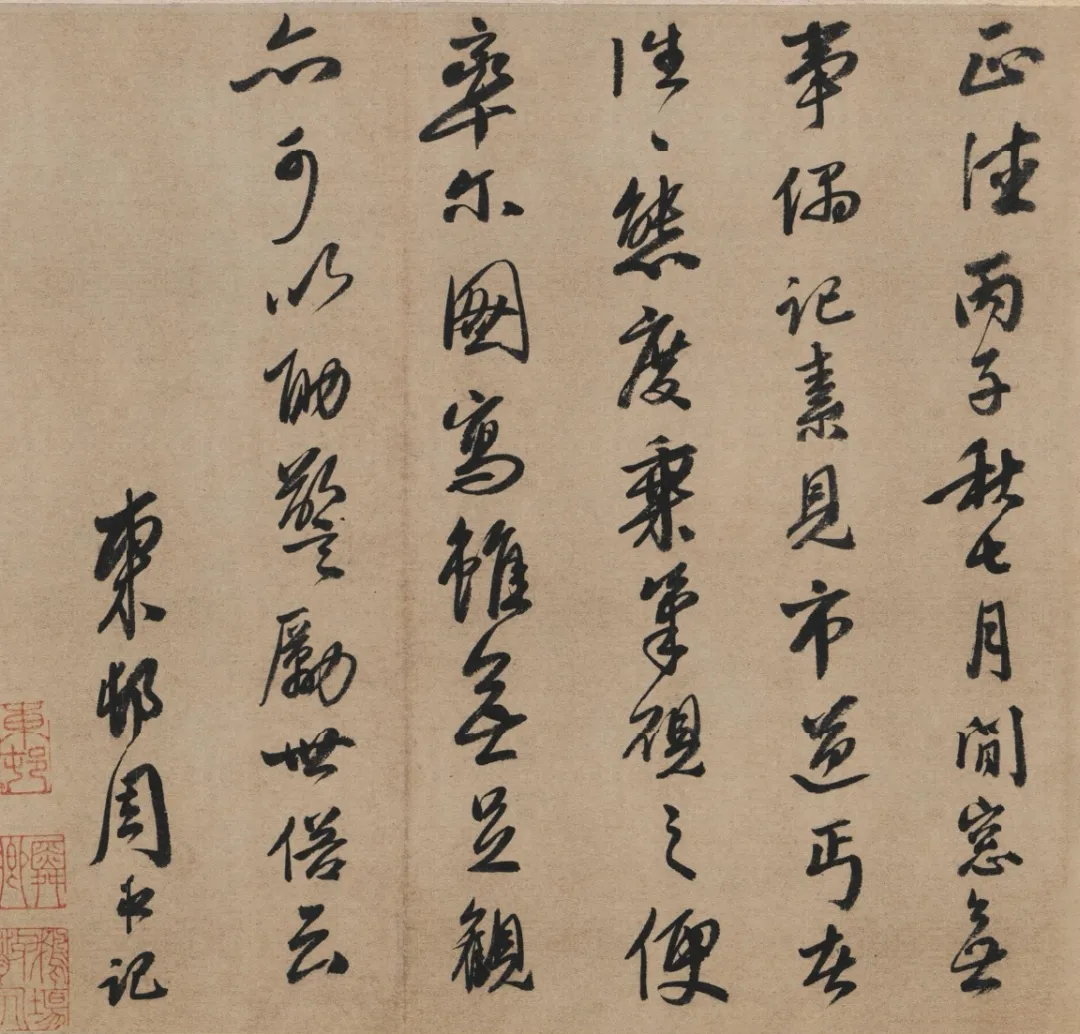 正德丙子秋七月閒窓無
事偶記素見市道丐者
往〻態度乘筆硯之便
率尔圖寫雖無足觀
亦可以助警勵世俗云
東邨周臣記
東邨
舜卿
鵝場散人